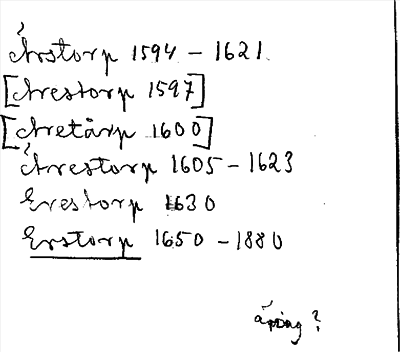 Årstorp 1594 – 1621.
[Arestorp 1597]
[Aretårp 1600]
Årestorp 1605 – 1623
Erestorp 1630
Erstorp 1650 – 1880